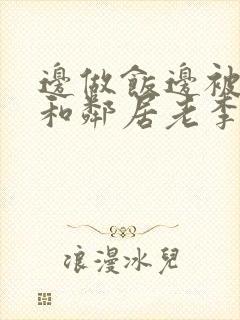 邊做飯邊被
和鄰居老李
浪漫冰兒